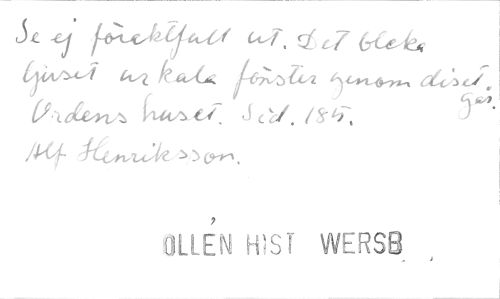 Se ej föraktfull ut. Det bleka
ljuset ur kala fönster genom diset
går.
Ordens huset. Sid. 185.
Alf Henriksson.
OLLÉN HIST WERSB